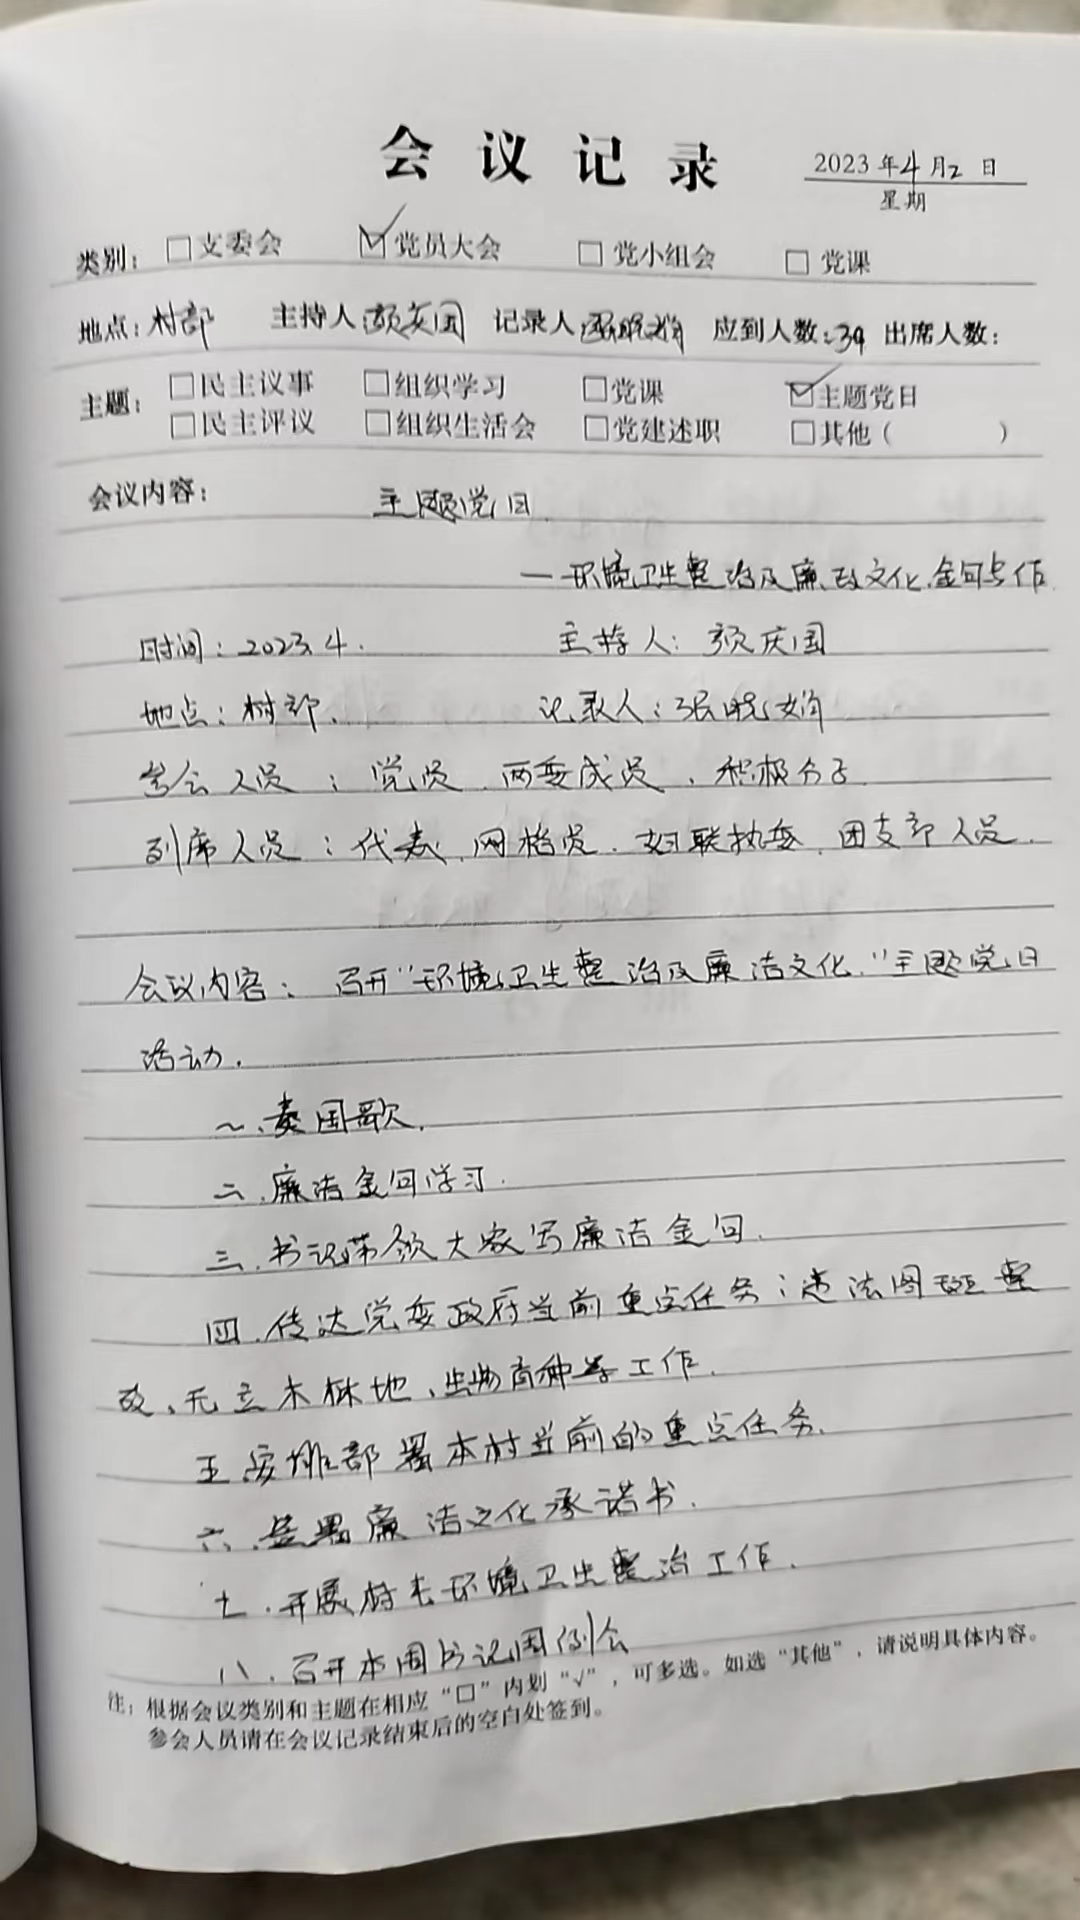 会议记录
2023年4月2日
星期
类别: □支委会 ☑党员大会 □党小组会 □党课
地点:村部 主持人颜庆国 记录人张晓娟 应到人数:39 出席人数:
主题: □民主议事 □组织学习 □党课 ☑主题党日
□民主评议 □组织生活会 □党建述职 □其他( )
会议内容: 主题党日
—环境卫生整治及廉政文化.金句写作
时间:2023.4. 主持人:颜庆国
地点:村部. 记录人:张晓娟
参会人员:党员.两委成员.积极分子.
列席人员:代表.网格员.妇联执委.团支部人员.
会议内容:召开"环境卫生整治及廉洁文化."主题党日
活动.
一.奏国歌.
二.廉洁金句学习.
三.书记带领大家写廉洁金句.
四.传达党委政府当前重点任务:违法图斑整
改、无立木林地、生物育种等工作.
五安排部署本村当前的重点任务.
六.签署廉洁文化承诺书.
七.开展村屯环境卫生整治工作.
八.召开本周书记周例会
注:根据会议类别和主题在相应"□"内划"√",可多选。如选"其他",请说明具体内容。
参会人员请在会议记录结束后的空白处签到。